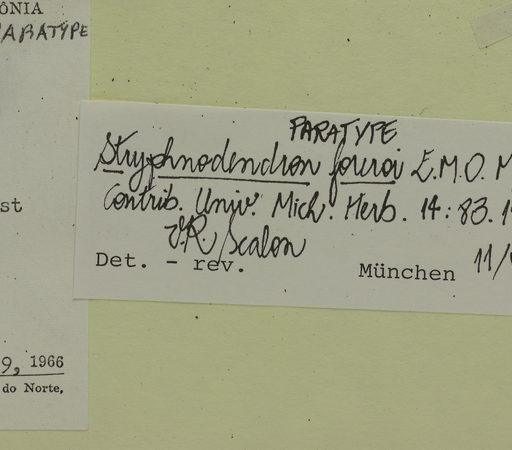 ÔNIA
PARATYPE
st
9, 1966
do Norte,
PARATYPE
Stryphnodendron fouroi E.M.O. M
Contrib. Univ. Mich. Herb. 14: 83. 1
V.R. Scalon
Det. - rev. München 11/